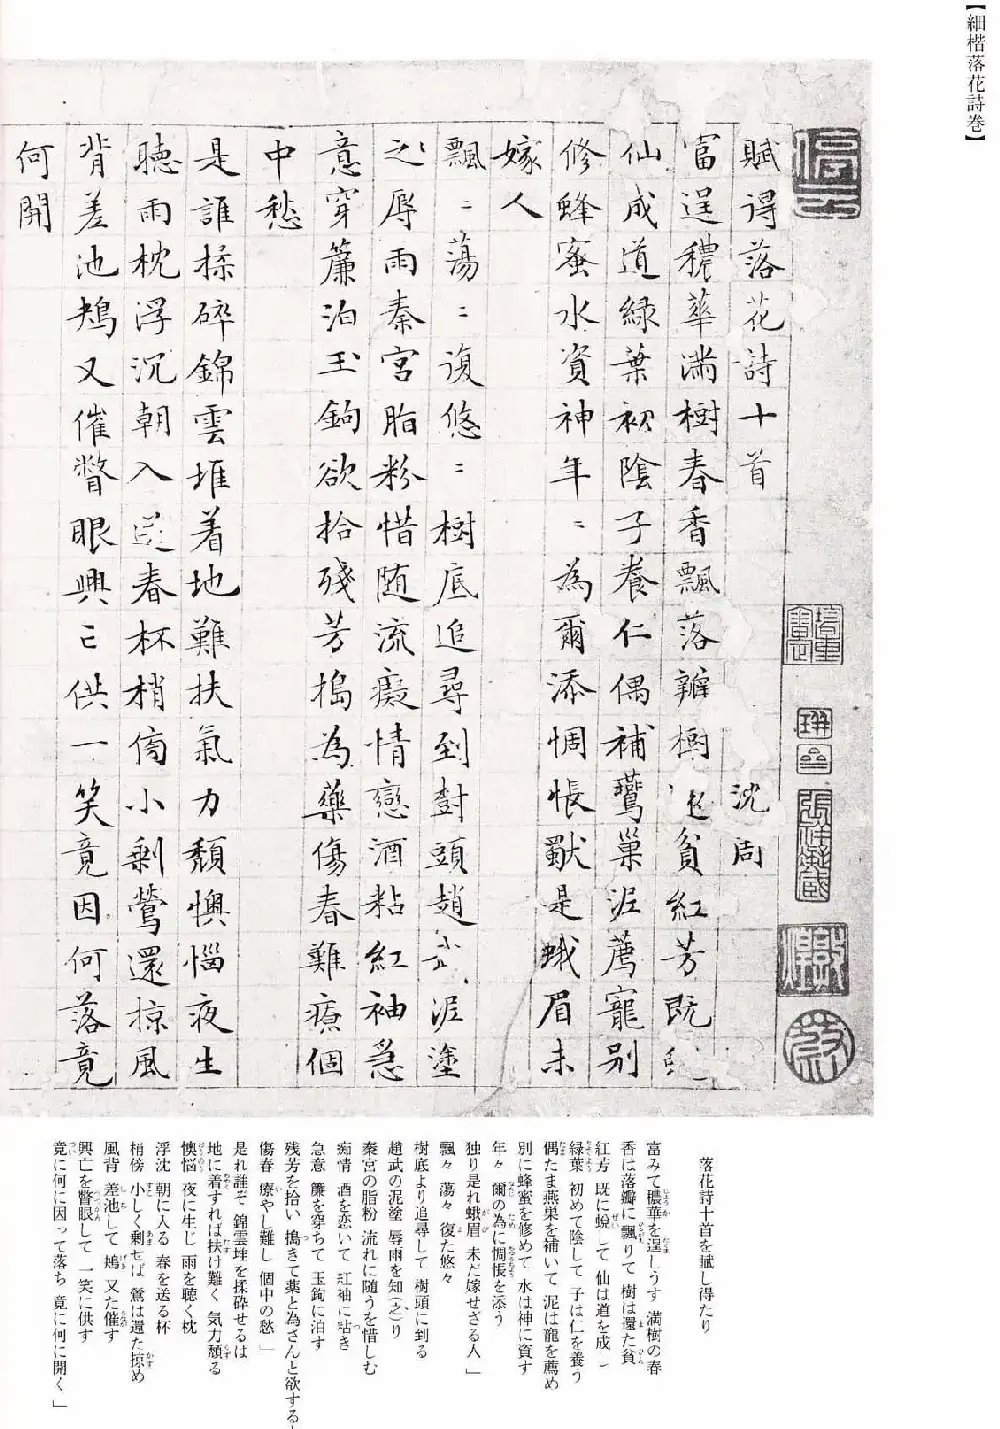 【細楷落花詩巻】
賦得落花詩十首 沈周
富逞穠華滿樹春香飄落瓣樹還貧紅芳既蛻
仙成道綠葉初陰子養仁偶補鷰巢泥薦寵別
修蜂蜜水資神年〻為爾添惆悵獸是蛾眉未
嫁人
飄〻蕩〻復悠〻樹底追尋到封頭趙武泥塗
之辱雨秦宮脂粉惜随流癡情戀酒粘紅袖急
意穿簾泊玉鉤欲拾殘芳搗為藥傷春難療個
中愁
是誰揉碎錦雲堆着地難扶氣力頹懊惱夜生
聽雨枕浮沉朝入送春杯梢傍小剩鶯還掠風
背差池鴂又催瞥眼興亡供一笑竟因何落竟
何開
落花詩十首を賦し得たり
富みて穠華を逞しうす 満樹の春
香に落瓣に飄りて 樹は還た貧
紅芳 既に蛻して 仙は道を成し
緑葉 初めて陰して 子は仁を養う
偶たま燕巣を補いて 泥は寵を薦め
別に蜂蜜を修めて 水は神に資す
年々 爾の為に惆悵を添う
独り是れ蛾眉 未だ嫁せざる人」
飄々 蕩々 復た悠々
樹底より追尋して 樹頭に到る
趙武の泥塗 辱雨を知(之)り
秦宮の脂粉 流れに随うを惜しむ
痴情 酒を恋いて 紅袖に粘き
急意 簾を穿ちて 玉鉤に泊す
残芳を拾い 搗きて薬と為さんと欲する
傷春 療やし難し 個中の愁」
是れ誰ぞ 錦雲堆を揉砕せるは
地に着すれば扶け難く 気力頽る
懊悩 夜に生じ 雨を聴く枕
浮沈 朝に入る 春を送る杯
梢傍 小しく剰せば 鶯は還た掠め
風背 差池して 鴂 又た催す
興亡を瞥眼して 一笑に供す
竟に何に因って落ち 竟に何に開く」